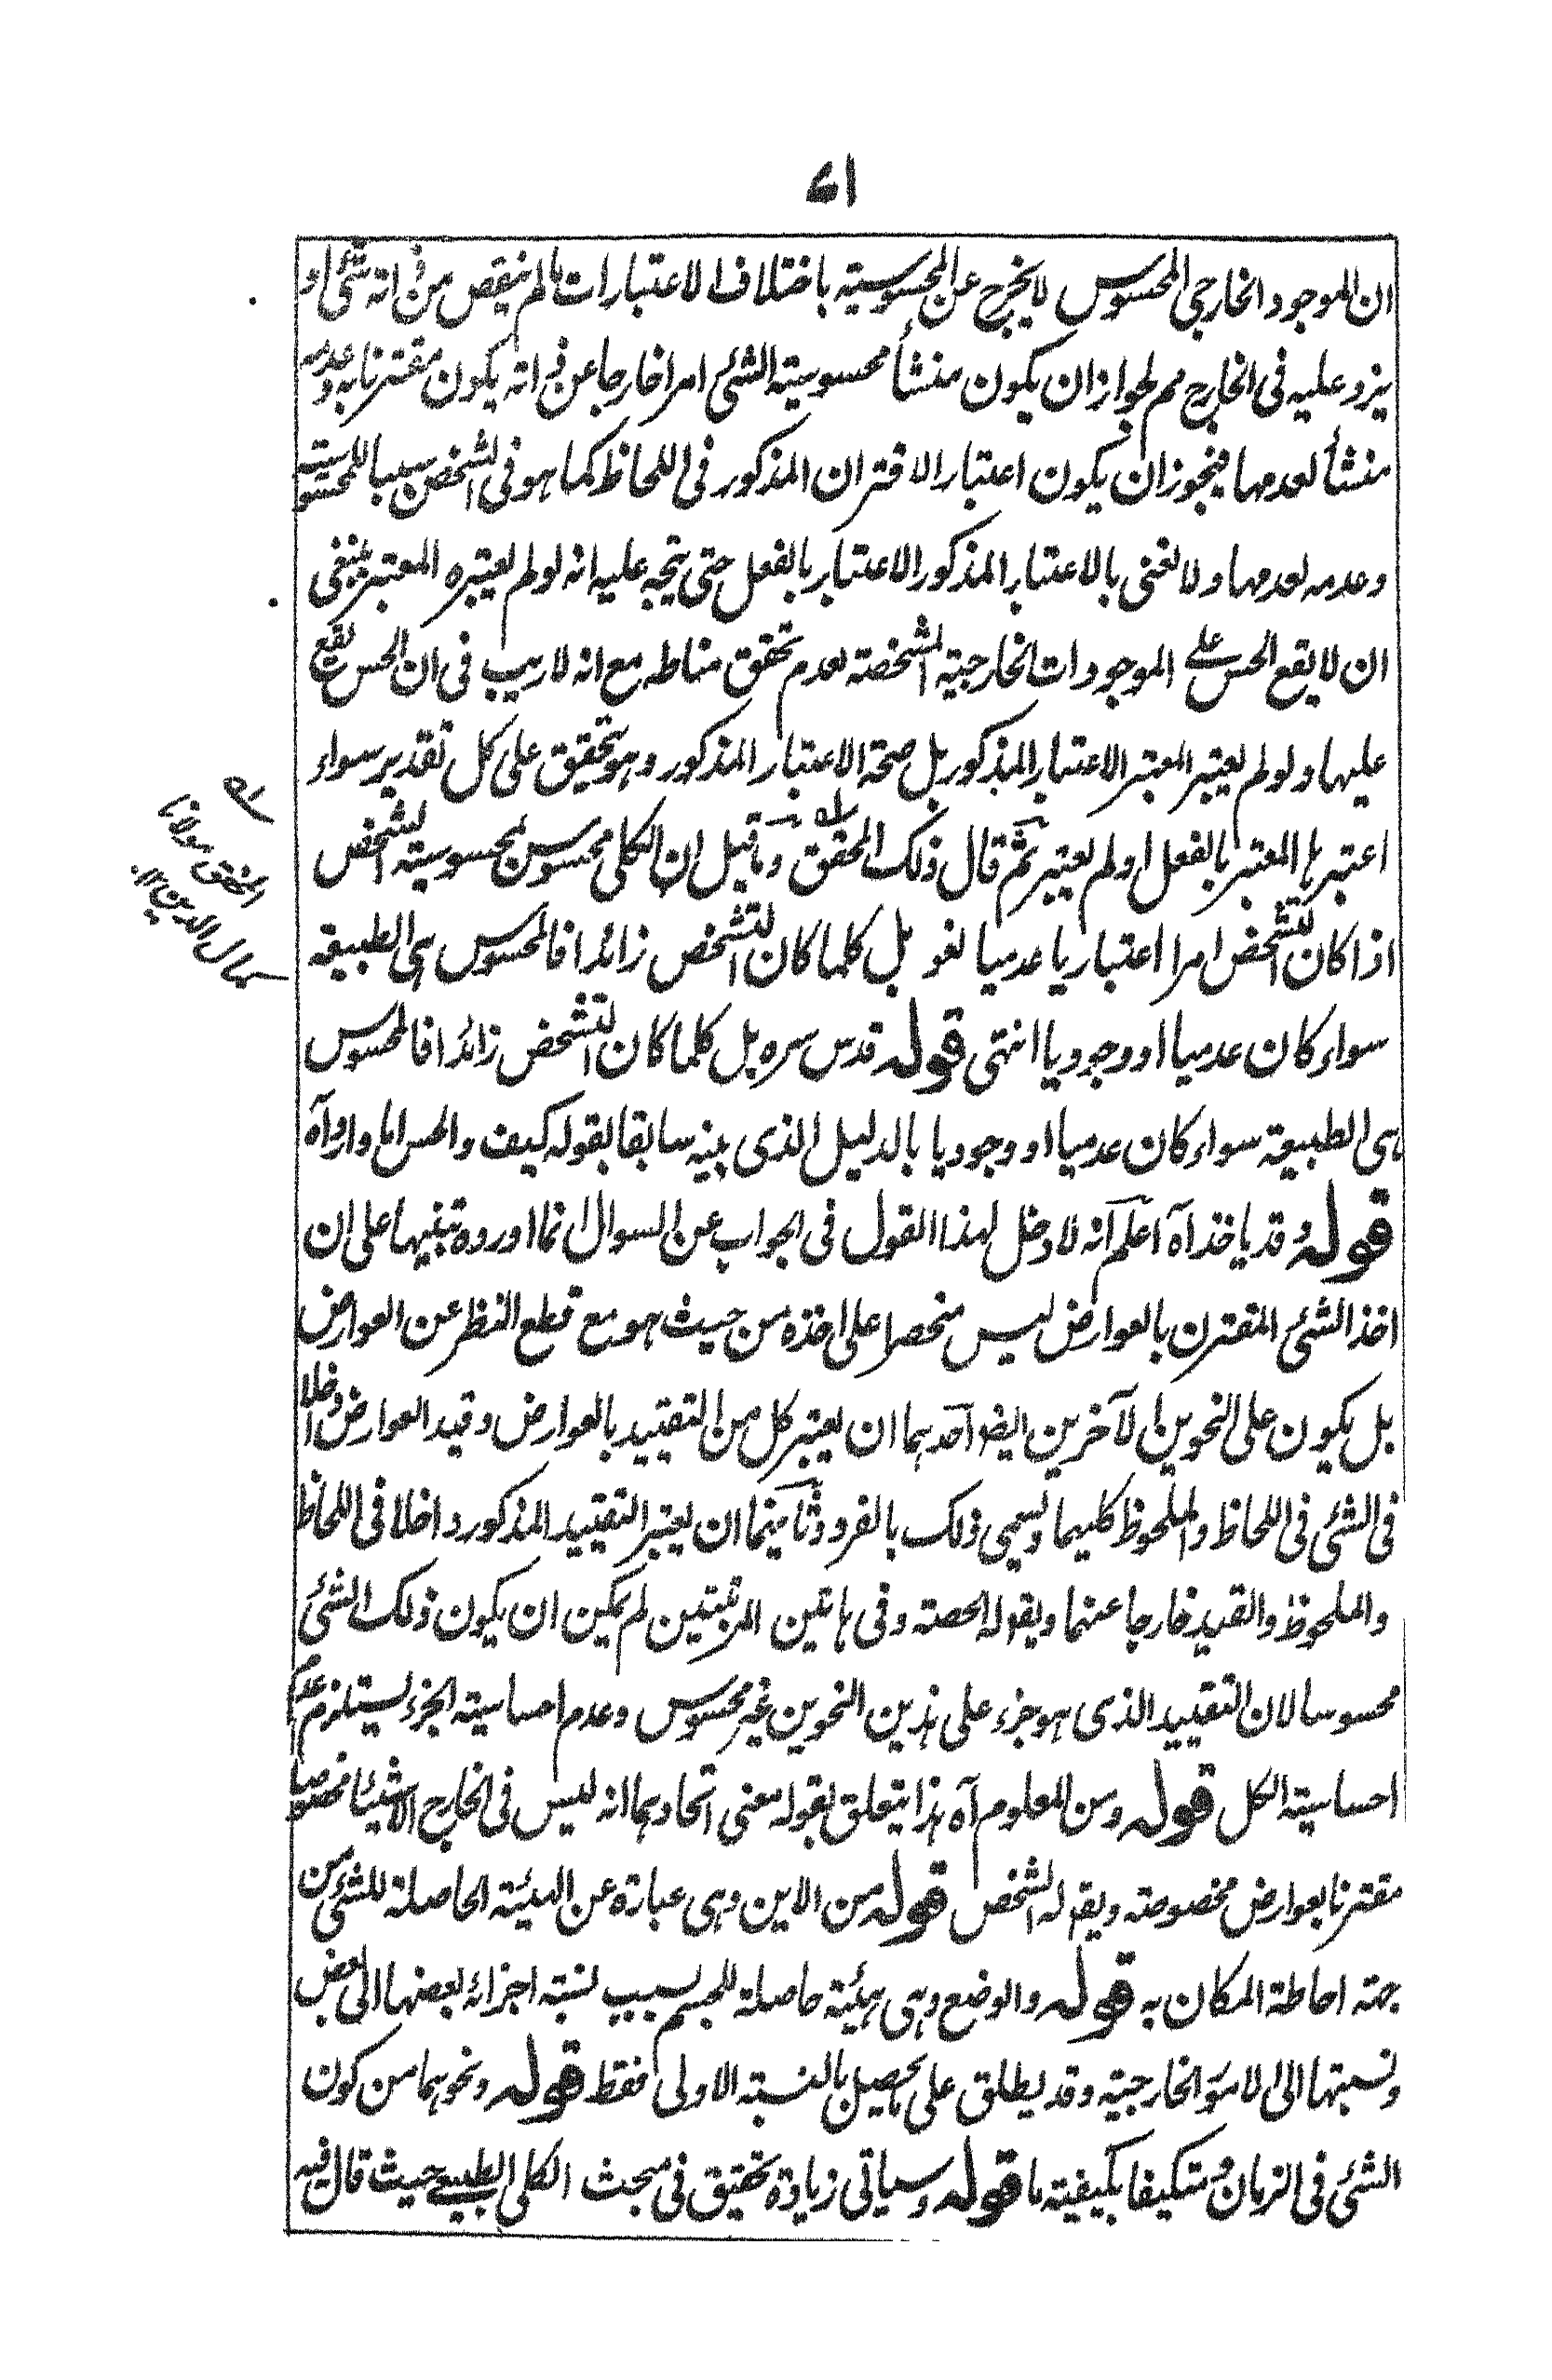 ٧١
ان الموجود الخارجي المحسوس لا يخرج عن المحسوسية باختلاف الاعتبارات ما لم ينقص من ذاته شئ او
يزد عليه في الخارج مم لجواز ان يكون منشأ محسوسية الشئ امرا خارجا عن ذاته يكون مقترنا به وعدمه
منشأ لعدمها فيجوز ان يكون اعتبار الاقتران المذكور في اللحاظ كما هو في الشخص سببا للمحسوسية
وعدمه لعدمها ولا نعني بالاعتبار المذكور الاعتبار بالفعل حتى يتجه عليه انه لو لم يعتبره المعتبر ينبغي
ان لا يقع الحس على الموجودات الخارجية المشخصة لعدم تحقق مناطه مع انه لا ريب في ان الحس يقع
عليها ولو لم يعتبر المعتبر الاعتبار المذكور بل صحة الاعتبار المذكور وهو تحقيق على كل تقدير سواء
اعتبرها المعتبر بالفعل او لم يعتبر ثم قال ذلك المحقق وما قيل ان الكلي محسوس بمحسوسية الشخص
اذا كان التشخص امرا اعتباريا عدميا لغو بل كلما كان التشخص زائدا فالمحسوس هي الطبيعة
سواء كان عدميا او وجوديا انتهى قوله قدس سره بل كلما كان التشخص زائدا فالمحسوس
هي الطبيعة سواء كان عدميا او وجوديا بالدليل الذي بينه سابقا بقوله كيف والحس اما وارد آه
قوله وقد ياخذ آه اعلم انه لا دخل لهذا القول في الجواب عن السوال انما اورده تنبيها على ان
اخذ الشئ المقترن بالعوارض ليس منحصرا على اخذه من حيث هو مع قطع النظر عن العوارض
بل يكون على النحوين الآخرين ايضا احدهما ان يعتبر كل من التقييد بالعوارض وقيد العوارض داخلا
في الشئ في اللحاظ والملحوظ كليهما ويسمى ذلك بالفرد وثانيهما ان يعتبر التقييد المذكور داخلا في اللحاظ
والملحوظ والقيد خارجا عنهما ويقال له الحصة وفي هاتين المرتبتين لم يكن ان يكون ذلك الشئ
محسوسا لان التقييد الذي هو جزء على هذين النحوين غير محسوس وعدم احساسية الجزء يستلزم عدم
احساسية الكل قوله ومن المعلوم آه هذا يتعلق بقوله معنى اتحادهما انه ليس في الخارج الا شيئا مخصوصا
مقترنا بعوارض مخصوصة ويقال له الشخص قوله من الاين وهي عبارة عن الهيئة الحاصلة للشئ من
جهة احاطة المكان به قوله والوضع وهي هيئة حاصلة للجسم بسبب نسبة اجزائه بعضها الى بعض
ونسبتها الى الامور الخارجية وقد يطلق على ما يحصل بالنسبة الاولى فقط قوله ونحوهما من كون
الشئ في الزمان ومتكيفا بكيفية ما قوله وسياتي زيادة تحقيق في مبحث الكلي الطبيعي حيث قال فيه
المحقق مولانا
كمال الدين ١٢